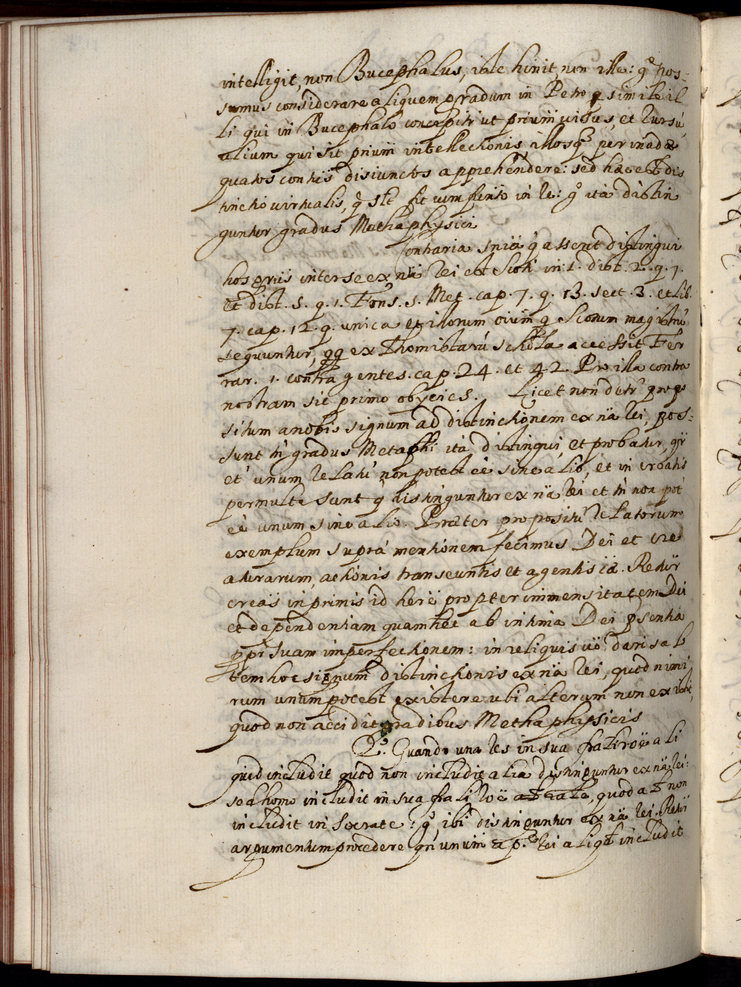 intelligit, non Bucephalus, iste hinit, non ille: qª pos-
sumus considerare aliquem gradum in Petro similem il
li qui in Bucephalo concipitr ut prium visus, et rursu
alium qui sit prium intellectionis illosq per inadæ
quatos contis disiunctos apprehendere: sed hæc est dis
tinctio virtualis, g slt fit cum in re: g ita distin
guntur gradus Methaphysici
Contraria snia q asserit distingui
hos grus inter se ex na rei est Scoti in 1. dist. 2. q. 7.
et dist. 8. q. 1. Fons. 5. Met. cap. 7. q. 13. sect. 3. et lib.
7. cap. 12. q. unica et illorum oium q Scotum magistru
sequuntur, qq ex Thomistaru schola accessit Fer
rar. 1. contra gentes. cap. 24. et 42. Pro illa contra
nostram sic primo obijcies. Licet non detr propo
situm a nobis signum ad distinctionem ex na rei, pos-
sunt tn gradus Metaphi ita distingui, et probatur, qr
et unum relatu non potest ee sine alio, et in creatis
permulta sunt q distinguntur ex na rei et tn non pot
ee unum sine alio. Præter propositu relatorum
exemplum supra mentionem fecimus Dei et cre
aturarum, actionis transeuntis et agentis iæ. Respr
creas in primis id heri propter immensitatem Dei
et dependentiam quam hēt ab intima Dei psentia
ppr suam imperfectionem: in reliquis uo dari sal
tem hoc signum distinctionis ex na rei, quod nimi
rum unum potest existere ubi alterum non existit,
quod non accidit gradibus Methaphysicis
2º. Quando una res in sua frali roe ali
quid includit quod non includit alia distinguntur ex na rei:
sed homo includit in sua frali roe, quod non
includit in Socrate: g ibi distinguntur ex na rei. Respr
argumentum procedere qn unum a p. rei aliqd includit